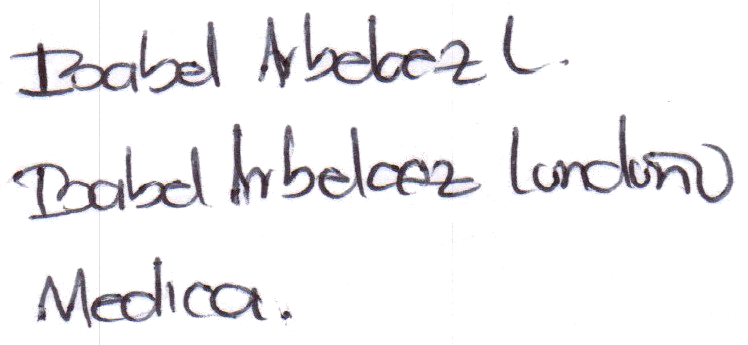 Isabel Arbelaez L.
Isabel Arbelaez Londoño
Medica.